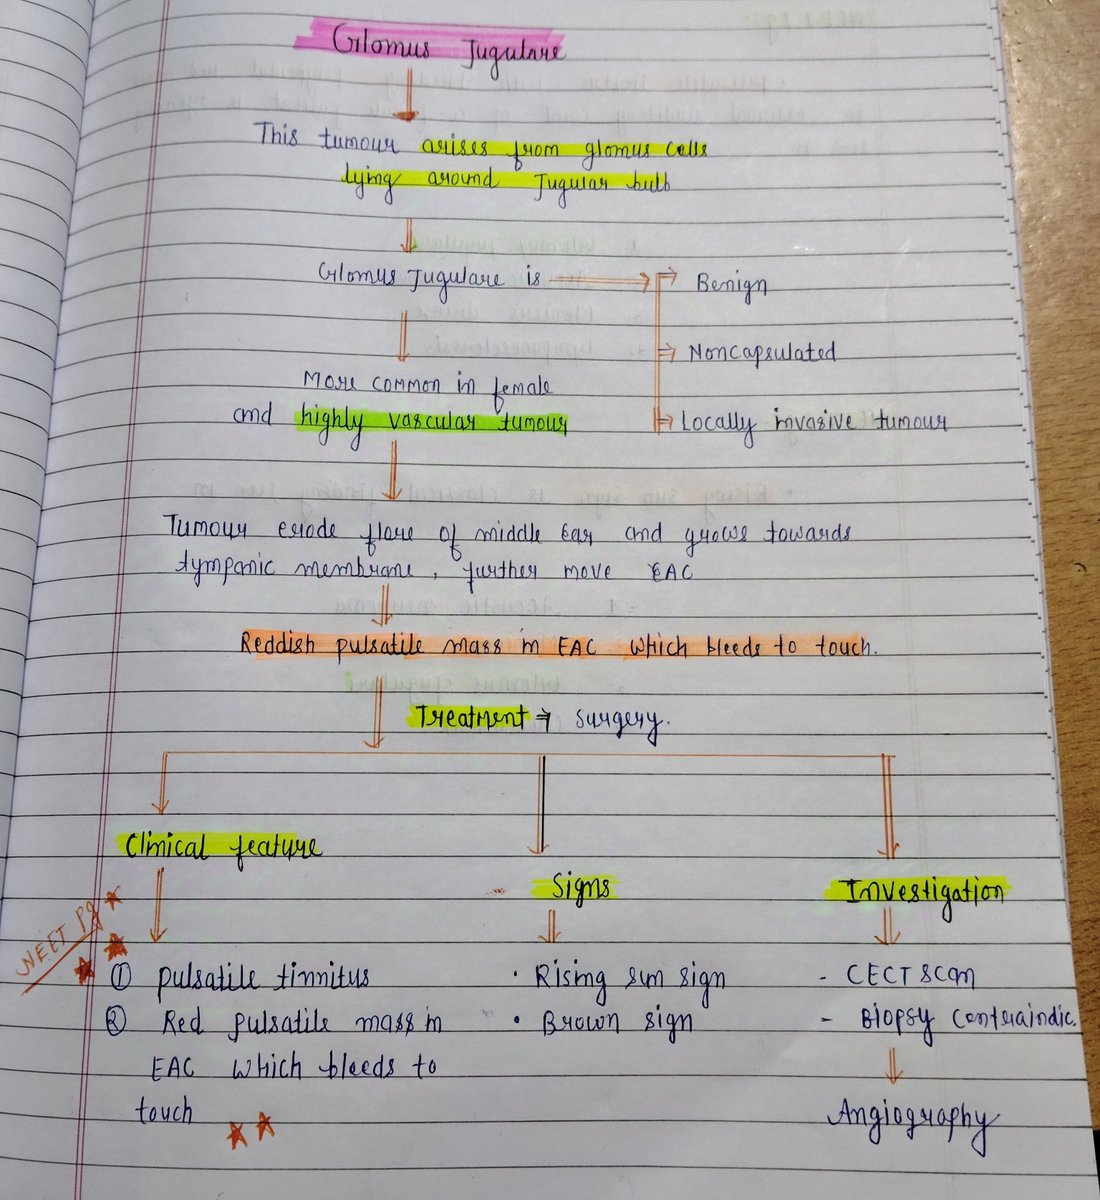 Glomus Jugulare
This tumour arises from glomus cells
lying around Jugular bulb
Glomus Jugulare is
Benign
Noncapsulated
Locally invasive tumour
More common in female
and highly vascular tumour
Tumour erode flore of middle Ear and grows towards
tympanic membrane, further move EAC
Reddish pulsatile mass in EAC which bleeds to touch.
Treatment ⇒ Surgery.
Clinical feature
NEET Pg
① Pulsatile tinnitus
② Red pulsatile mass in
EAC which bleeds to
touch
Signs
• Rising sun sign
• Brown sign
Investigation
- CECT SCan
- Biopsy Contraindic.
Angiography